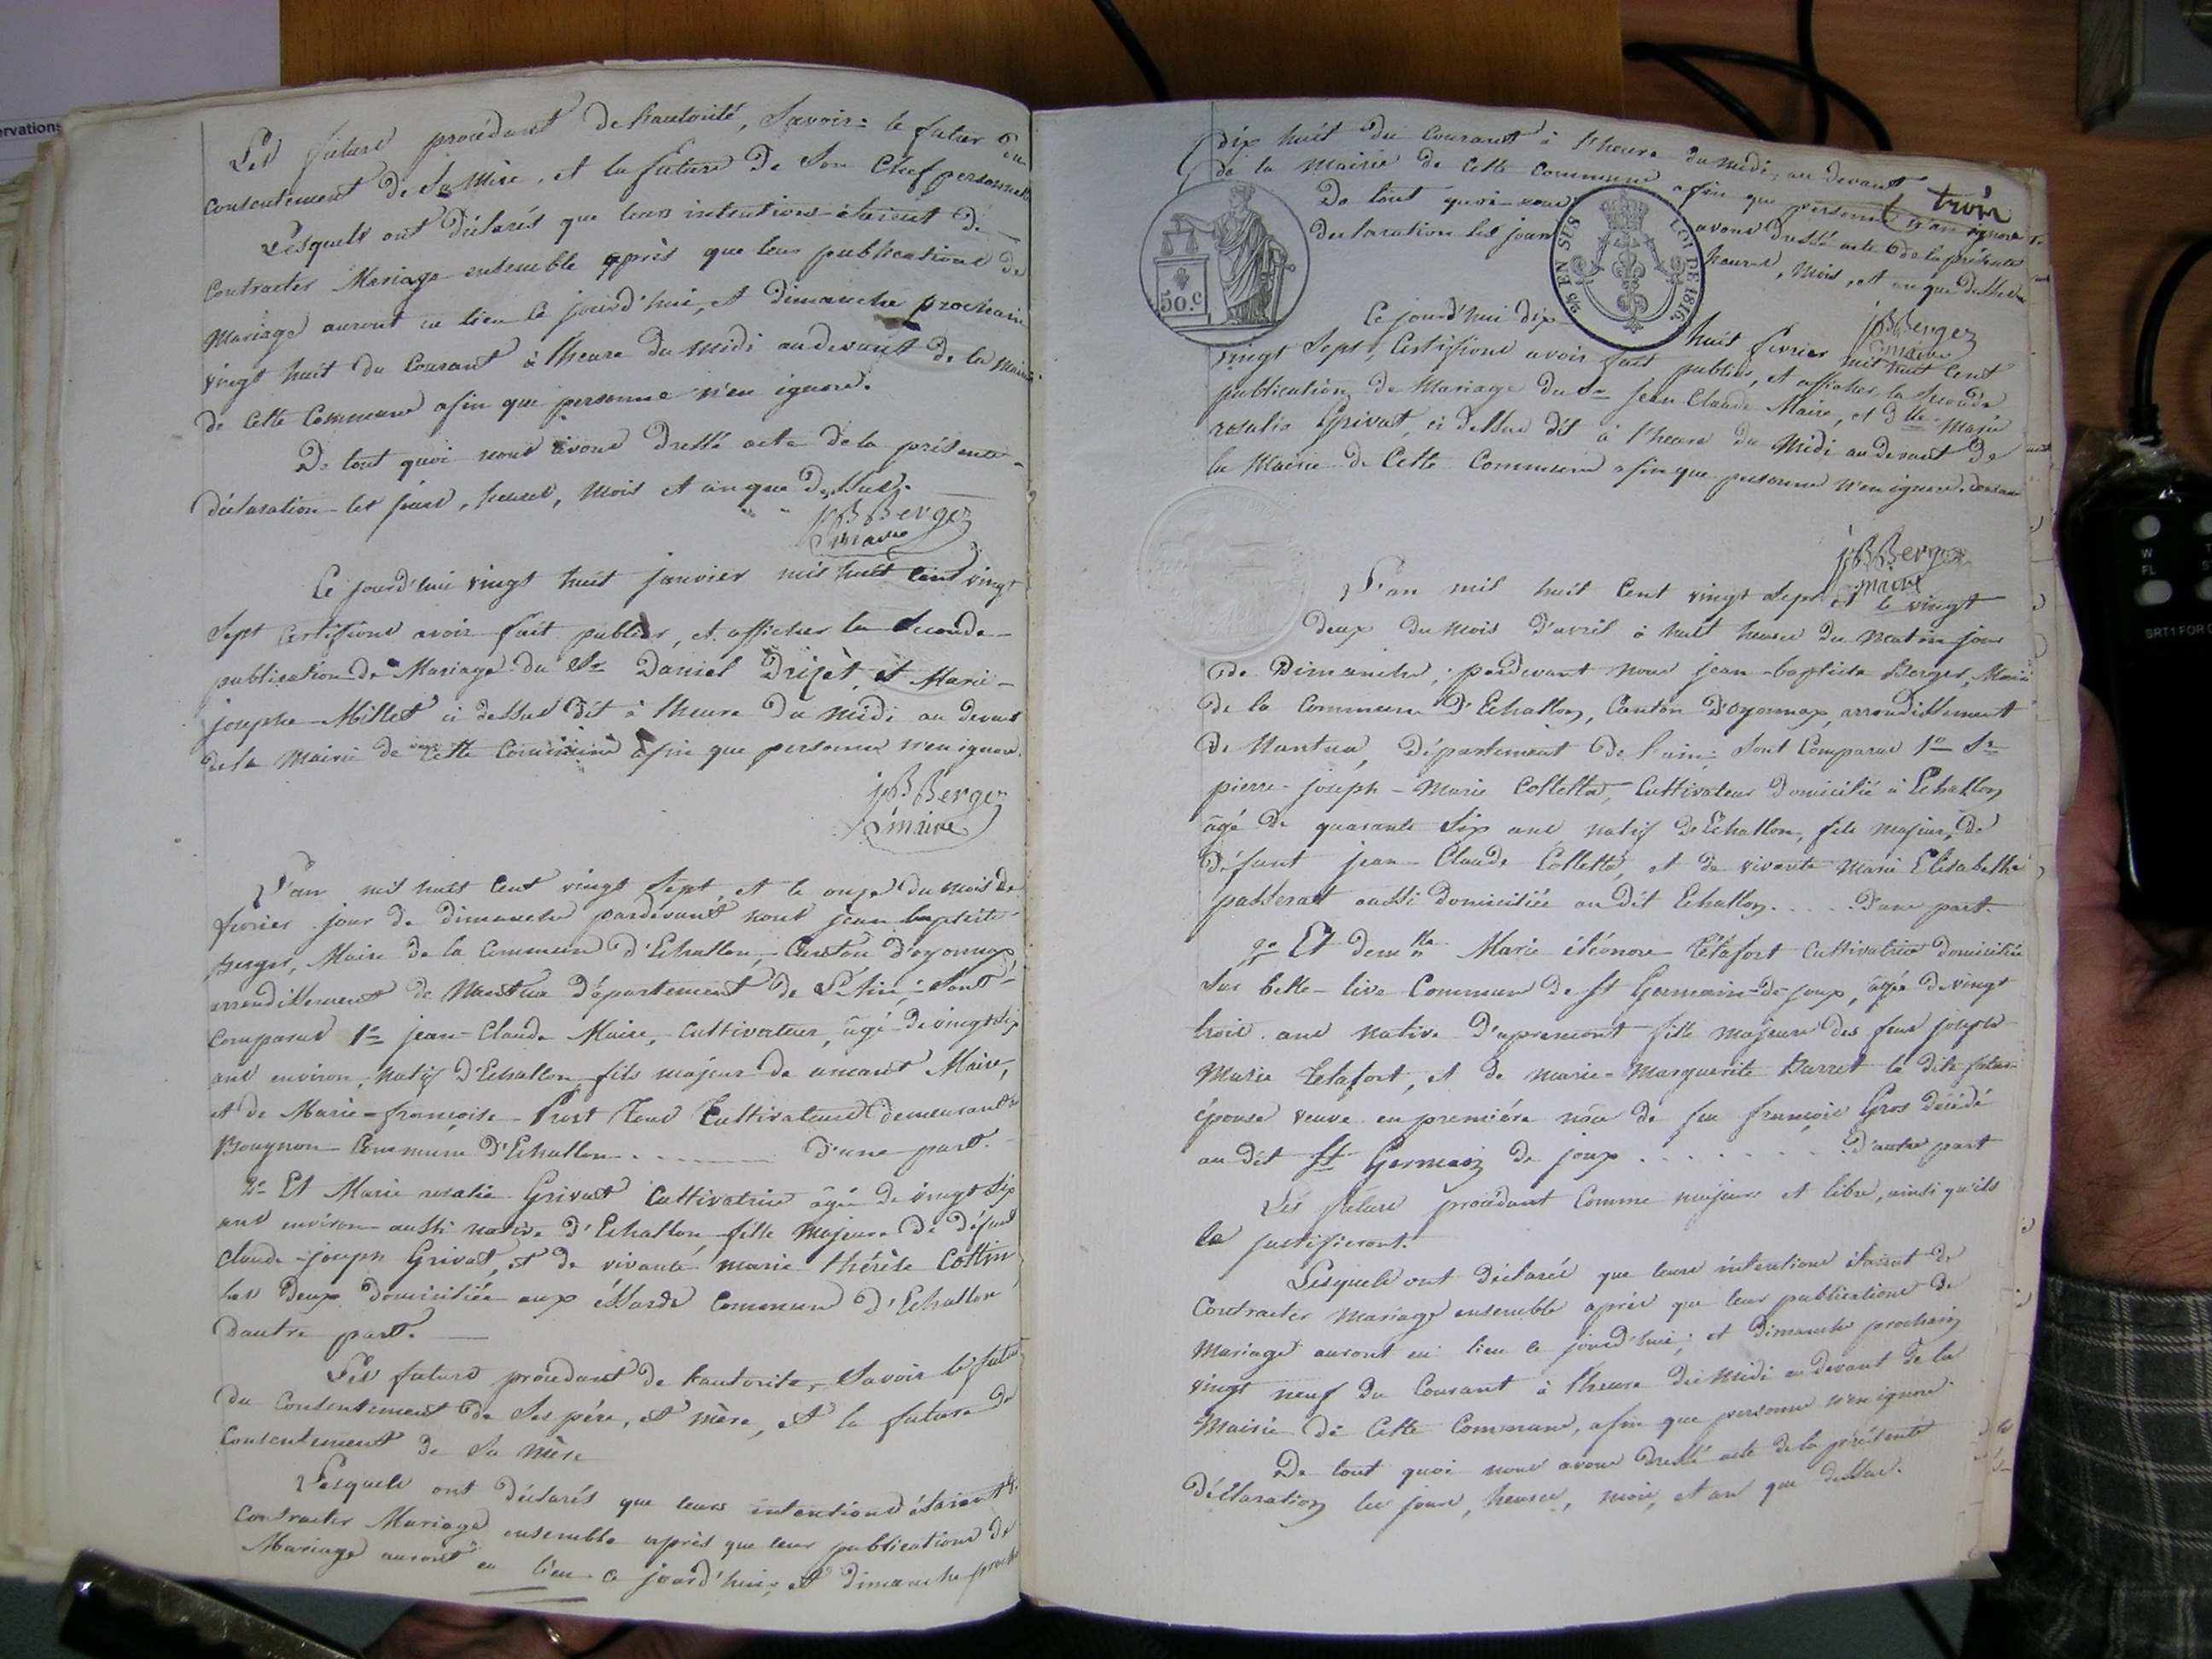 ervations
Les futurs procédant de l'autorité, Savoir: le futur du
consentement de Sa Mère, et la future de Son Chef personnel
Lesquels ont déclarés que leurs intentions étaient de
contracter Mariage ensemble après que leur publications de
Mariage auront eu lieu ce jourd'hui, et dimanche prochain
vingt huit du Courant à l'heure du midi au devant de la mairie
de Cette Commune afin que personne n'en ignore.
De tout quoi nous avons dressé acte de la présente
déclaration les jour, heures, Mois et an que dessus.
JB Berger
maire
Ce jourd'hui vingt huit janvier mil huit Cent vingt
Sept Certifions avoir fait publier, et afficher la Seconde
publication de Mariage du Sr Daniel Drizèt, et Marie
josephe Millet ci dessus dit à l'heure du midi au devant
de la Mairie de cette Commune afin que personne n'en ignore.
JB Berger
maire
L'an mil huit Cent vingt Sept et le onze du mois de
fevrier jour de dimanche pardevant nous jean baptiste
Berger, Maire de la Commune d'Echallon, Canton d'oyonnax,
arrondissement de Nantua département de L'Ain; Sont
Comparus 1o jean-Claude Maire, Cultivateur, âgé de vingt six
ans environ, natif d'Echallon fils majeur de Maire,
et de Marie-françoise Prost tous Cultivateurs demeurants
Bougnon Commune d'Echallon. . d'une part.
2o Et Marie rosalie Grivat Cultivatrice âgée de vingt six
ans environ aussi native d'Echallon fille Majeure de défunt
Claude-joseph Grivat, et de vivante marie thérèse Cottin
les deux domiciliée aux Commune d'Echallon
dautre part.
Les futurs procédant de l'autorité, Savoir le futur
du Consentement de Ses père, et mère, et la future de
Consentement de Sa mère
Lesquels ont déclarés que leurs intentions étaient de
Contracter Mariage ensemble après que leur publications de
Mariage auront eu lieu ce jourd'hui, et dimanche proch
dix huit du Courant à l'heure du midi, au devant
de la Mairie de Cette Commune afin que personne n'en ignore
trois
De tout quoi nous avons dressé acte de la présente
declaration les jour heures, Mois, et an que dessus
50.c
EN SUS
LOI DE 1816
JB Berger
maire
Ce jourd'hui dix huit fevrier mil huit Cent
vingt Sept, Certifions avoir fait publier, et afficher la Seconde
publication de Mariage du Sr Jean Claude Maire, et Dlle Marie
rosalie Grivat, ci dessus dit à l'heure du Midi au devant de
la Mairie de Cette Commune afin que personne n'en ignore.
JB Berger
maire
L'an mil huit Cent vingt Sept et le vingt
deux du mois d'avril à huit heures du matin jour
de Dimanche; pardevant nous jean-baptiste Berger, Maire
de la Commune d'Echallon, Canton d'oyonnax, arrondissement
de Nantua, Département de l'ain; Sont Comparus 1o Sr
pierre-joseph-Marie Colletta, Cultivateur domicilié à Echallon
âgé de quarante Six ans natif d'Echallon, fils majeur, de
défunt jean-Claude Colletta, et de vivante Marie Elisabethe
passerat aussi domiciliée au dit Echallon. . . . D'une part.
2o Et demlle Marie éléonore Tétafort Cultivatrice domiciliée
Sur belle-live Commune de St Germain-de-joux, âgée de vingt
trois ans native D'apremont fille majeure des feus joseph
Marie Tétafort, et de marie-Marguerite Barret la dite future
épouse veuve en première nôce de feu françois Gros décédé
au dit St Germain de joux . . . . . . D'autre part
Les futurs procédant Comme majeurs et libre, ainsi qu'ils
le justifieront.
Lesquels ont déclarés que leurs intentions étaient de
Contracter mariage ensemble après que leur publications de
Mariage auront eu lieu ce jourd'hui; et dimanche prochain
vingt neuf du Courant à l'heure du midi au devant de la
Mairie de Cette Commune, afin que personne n'en ignore.
De tout quoi nous avons dressé acte de la présente
déclaration les jours, heures, mois, et an que dessus.
W
FL
SRT1 FOR